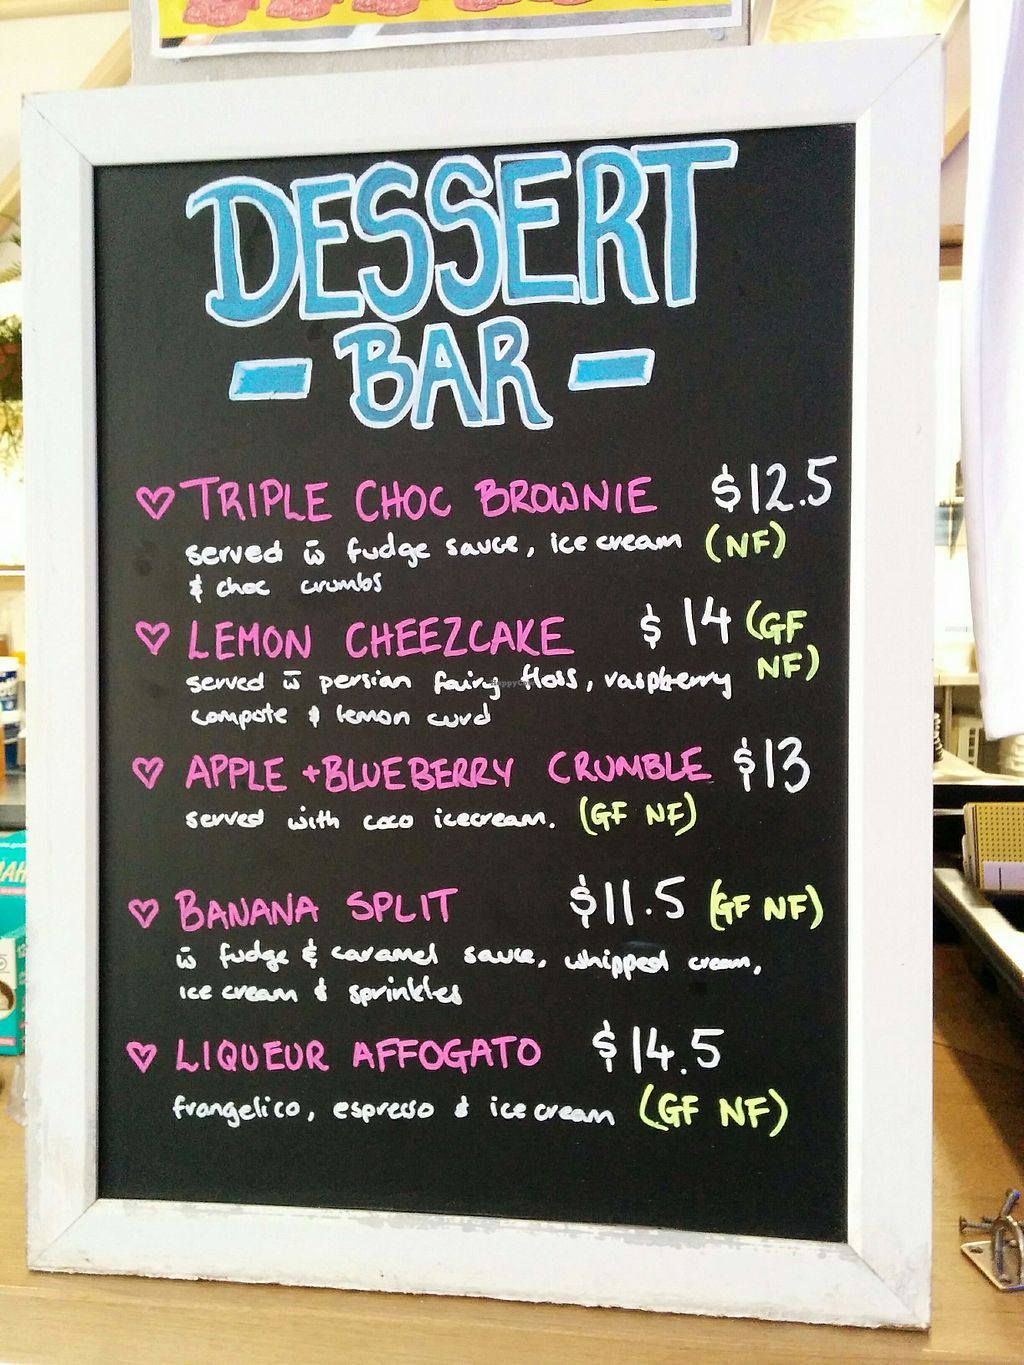 DESSERT
- BAR -
♡ TRIPLE CHOC BROWNIE $12.5
served w̅ fudge sauce, ice cream (NF)
& choc crumbs
♡ LEMON CHEEZCAKE $14 (GF
NF)
served w̅ persian fairy floss, raspberry
compote & lemon curd
♡ APPLE + BLUEBERRY CRUMBLE $13
served with coco icecream. (GF NF)
♡ BANANA SPLIT $11.5 (GF NF)
w̅ fudge & caramel sauce, whipped cream,
ice cream & sprinkles
♡ LIQUEUR AFFOGATO $14.5
frangelico, espresso & ice cream (GF NF)